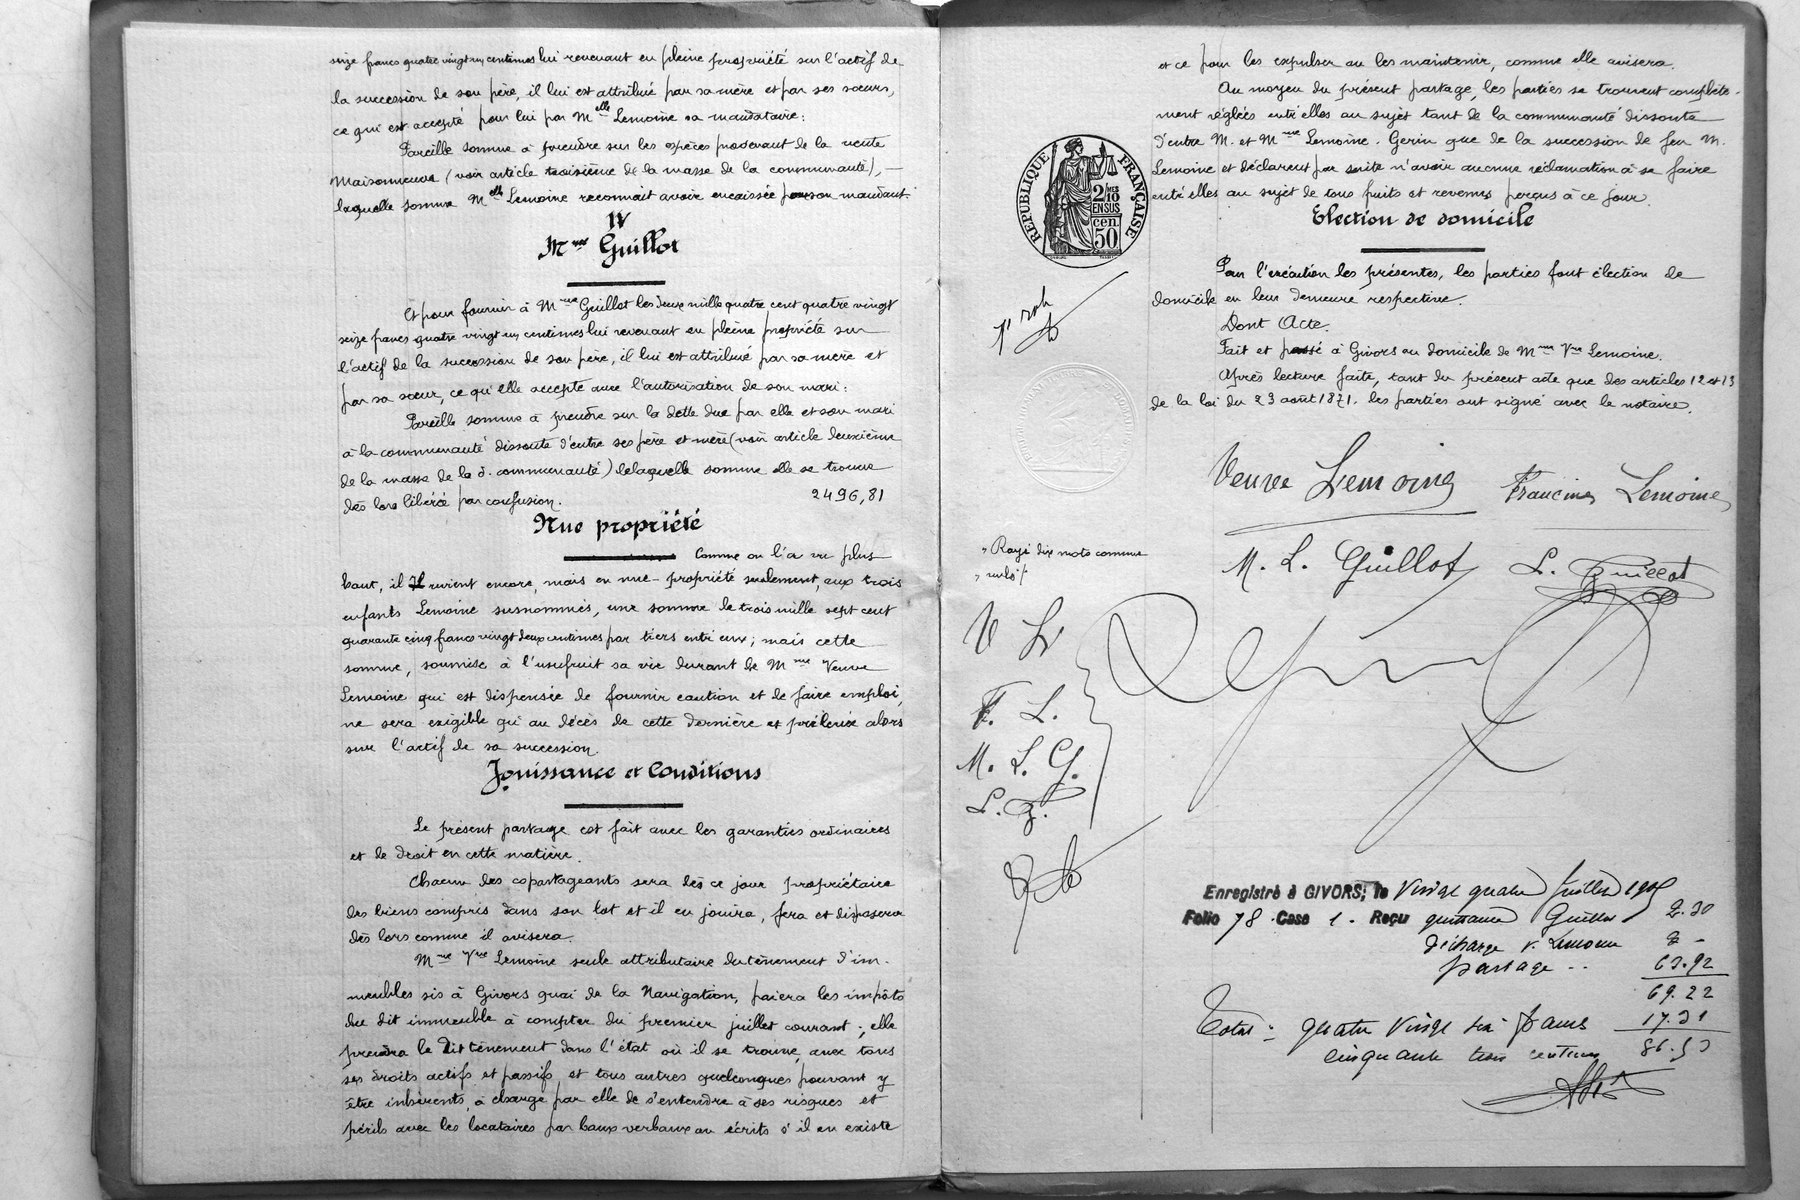 seize francs quatre vingt un centimes lui revenant en pleine propriété sur l'actif de
la succession de son père, il lui est attribué par sa mère et par ses sœurs,
ce qui est accepté pour lui par Melle Lemoine sa mandataire:
Pareille somme à prendre sur les espèces provenant de la vente
Maisonneuve (voir article troisième de la masse de la communauté),
laquelle somme Melle Lemoine reconnait avoir encaissée pour son mandant.
IV
Mme Guillot
Et pour fournir à Mme Guillot les deux mille quatre cent quatre vingt
seize francs quatre vingt un centimes lui revenant en pleine propriété sur
l'actif de la succession de son père, il lui est attribué par sa mère et
par sa sœur, ce qu'elle accepte avec l'autorisation de son mari:
Pareille somme à prendre sur la dette due par elle et son mari
à la communauté dissoute d'entre ses père et mère (voir article deuxième
de la masse de la d. communauté) de laquelle somme elle se trouve
dès lors libérée par confusion. 2496,81
Nue propriété
Comme on l'a vu plus
haut, il revient encore, mais en nue-propriété seulement, aux trois
enfants Lemoine susnommés, une somme de trois mille sept cent
quarante cinq francs vingt deux centimes par tiers entre eux; mais cette
somme, soumise à l'usufruit sa vie durant de Mme Veuve
Lemoine qui est dispensée de fournir caution et de faire emploi,
ne sera exigible qu'au décès de cette dernière et prélevée alors
sur l'actif de sa succession.
Jouissance et Conditions
Le présent partage est fait avec les garanties ordinaires
et de droit en cette matière.
Chacun des copartageants sera dès ce jour propriétaire
des biens compris dans son lot et il en jouira, fera et disposera
dès lors comme il avisera.
Mme Vve Lemoine seule attributaire du tènement d'im-
meubles sis à Givors quai de la Navigation, paiera les impôts
du dit immeuble à compter du premier juillet courant; elle
prendra le dit tènement dans l'état où il se trouve, avec tous
ses droits actifs et passifs et tous autres quelconques pouvant y
être inhérents, à charge par elle de s'entendre à ses risques et
périls avec les locataires par baux verbaux ou écrits s'il en existe
et ce pour les expulser ou les maintenir, comme elle avisera.
Au moyen du présent partage, les parties se trouvent complète-
ment réglées entr'elles au sujet tant de la communauté dissoute
d'entre M. et Mme Lemoine-Gerin que de la succession de feu M.
Lemoine et déclarent par suite n'avoir aucune réclamation à se faire
entr'elles au sujet de tous fruits et revenus perçus à ce jour.
RÉPUBLIQUE FRANÇAISE
2/10
EN SUS
50 cen
Election de domicile
Pour l'exécution des présentes, les parties font élection de
domicile en leur demeure respective.
Dont Acte.
Fait et passé à Givors au domicile de Mme Vve Lemoine.
Après lecture faite, tant du présent acte que des articles 12 et 13
de la loi du 23 août 1871, les parties ont signé avec le notaire.
Veuve Lemoine
Francine Lemoine
M. L. Guillot
L. Guillot
Rayé dix mots comme
nuls
V L
F. L.
M. L. G.
L. G.
Enregistré à GIVORS, le Vingt quatre Juillet 1905
Folio 78 Case 1. Reçu quittance Guillot 2.30
décharge v. Lemoine
partage .. 63.92
69.22
17.31
Total: quatre Vingt six francs
cinquante trois centimes 86.53